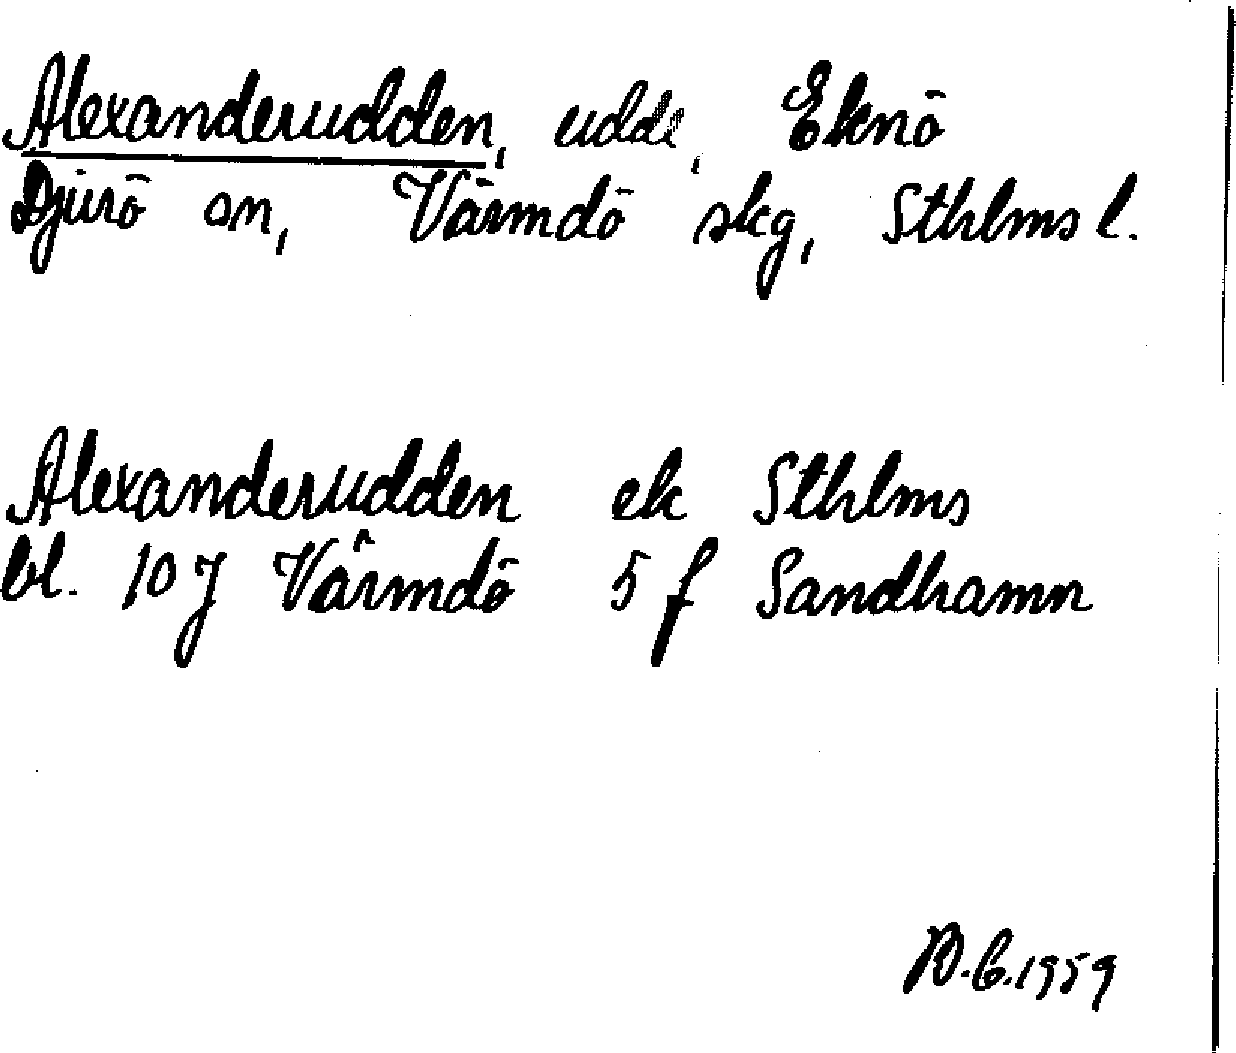 Alexanderudden, udde, Eknö
Djurö sn, Värmdö skg, Sthlms l.
Alexanderudden ek Sthlms
bl. 10 J Värmdö 5 f Sandhamn
1959